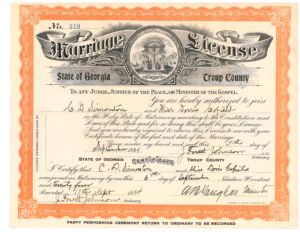 No. 919
Marriage License
State of Georgia Troup County
To any Judge, Justice of the Peace, or Minister of the Gospel.
You are hereby authorized to join
C. D. Simonton and Miss Doris Cofield
in the Holy State of Matrimony according to the Constitution and
Laws of this State and for so doing this shall be your License.
And you are hereby required to return this License to me with your
Certificate hereon of the fact and date of the Marriage.
Given under my hand and seal this day of
September 1924 Forrest Johnson
CERTIFICATE
STATE OF GEORGIA TROUP COUNTY
I Certify that C. D. Simonton and Miss Doris Cofield
were joined in Matrimony by me this 6th day of September Nineteen Hundred
and twenty four
Sept 1924
Forrest Johnson
PARTY PERFORMING CEREMONY RETURN TO ORDINARY TO BE RECORDED